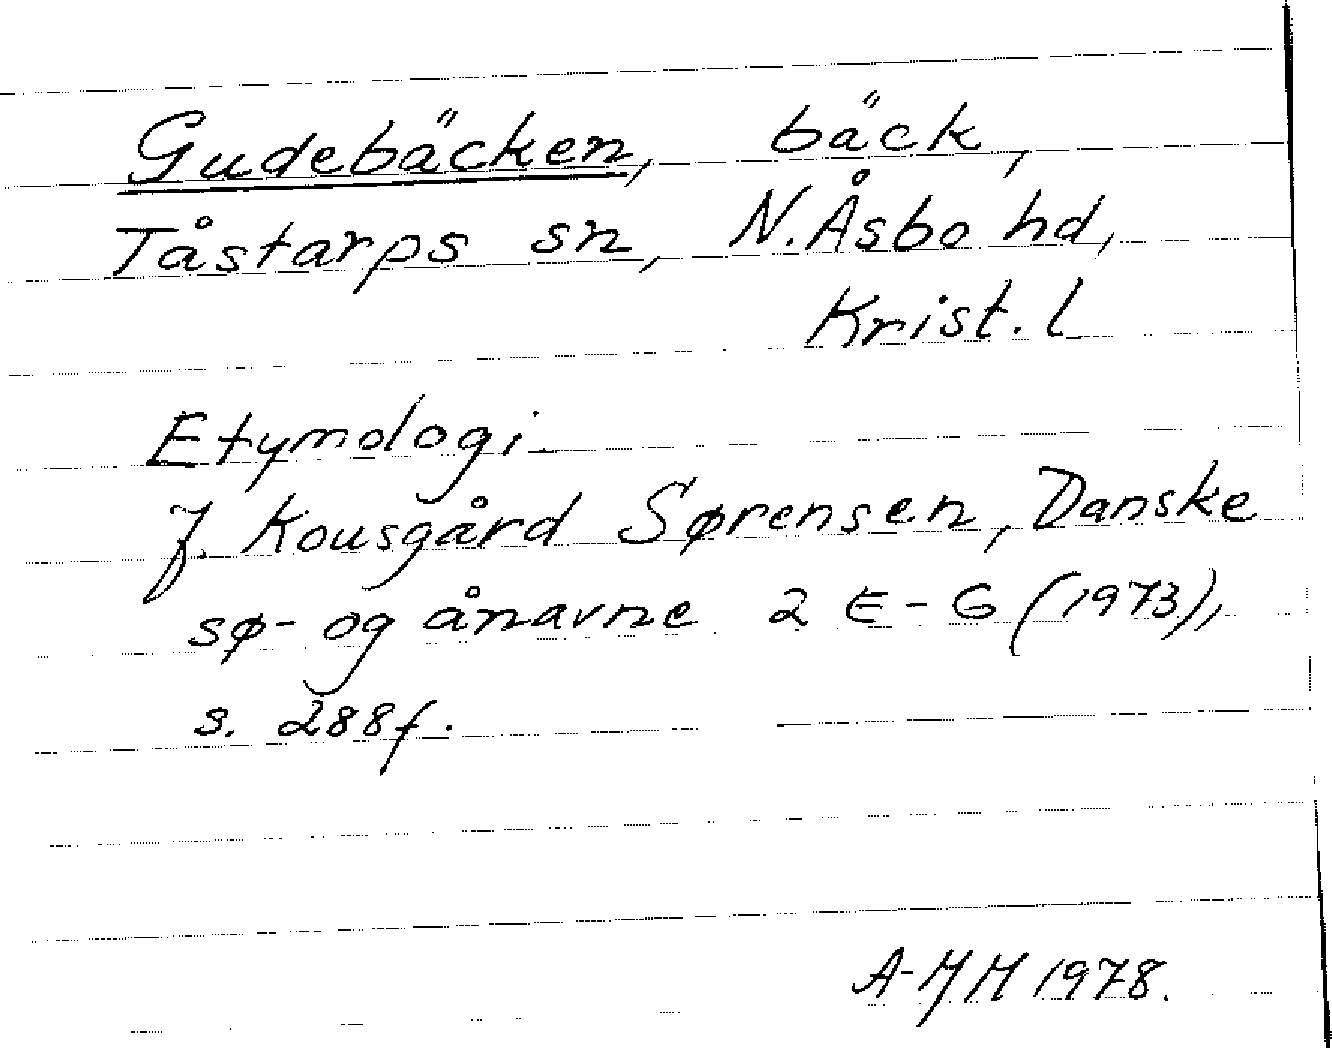 Gudebäcken, bäck,
Tåstarps sn, N. Åsbo hd,
Krist. l
Etymologi
J. Kousgård Sørensen, Danske
sø- og ånavne 2 E-G (1973),
s. 288f.
1978.